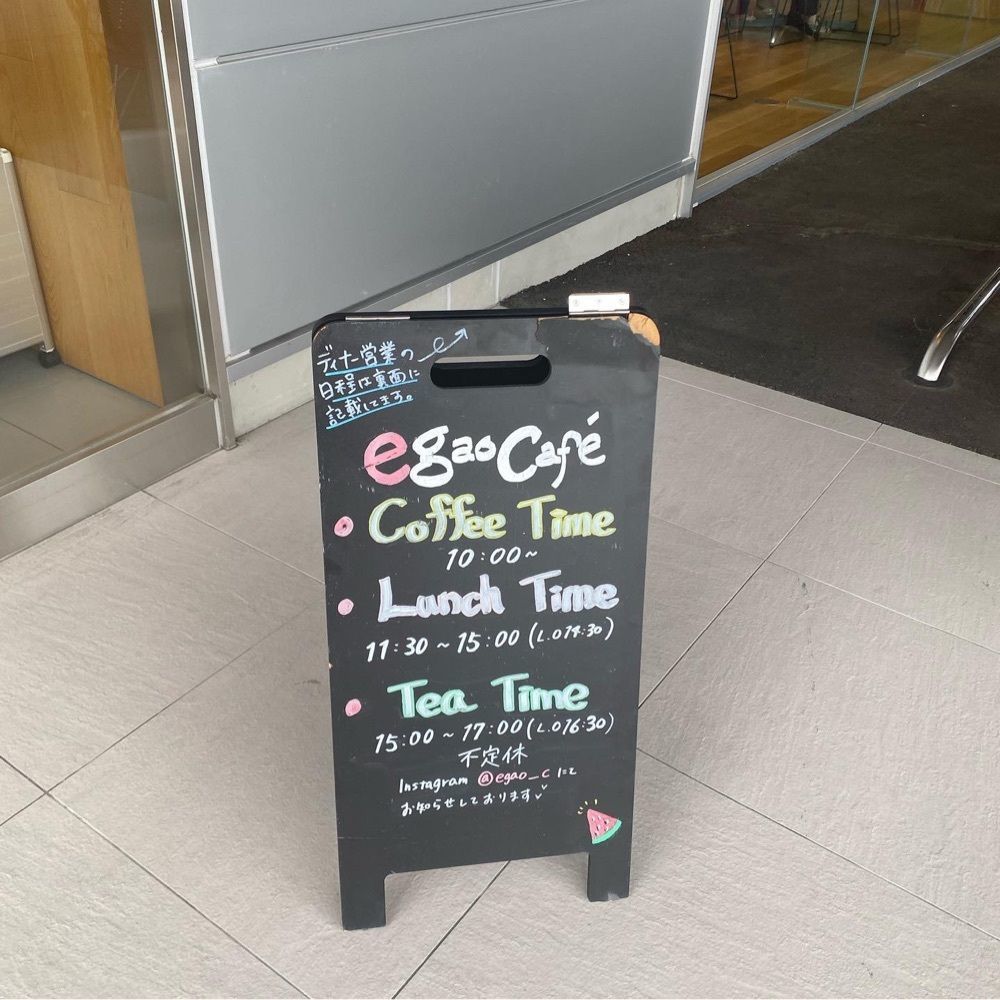 ディナー営業の
日程は裏面に
記載してます。
egao Café
Coffee Time
10:00~
Lunch Time
11:30~15:00 (L.O14:30)
Tea Time
15:00~17:00 (L.O16:30)
不定休
Instagram @egao_c にて
お知らせしております